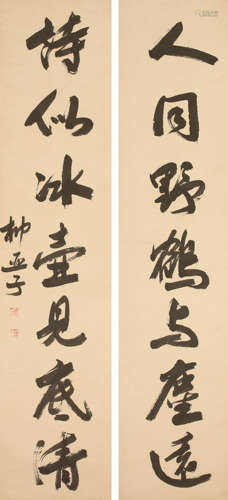 人同野鶴与塵遠
詩似冰壺見底清
柳亚子